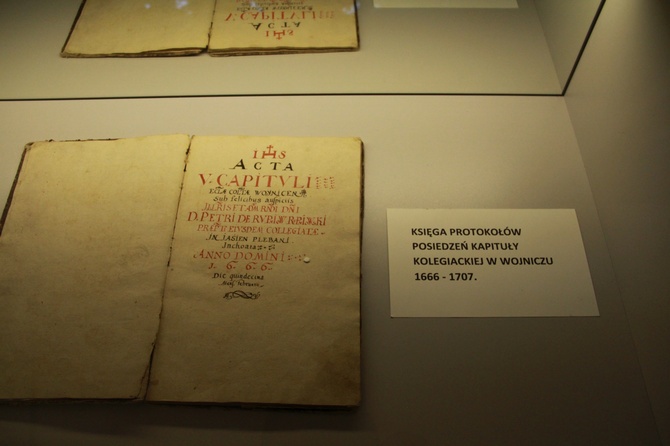 IHS
ACTA
V. CAPITVLI
Sub felicibus auspiciis
D. PETRI DE
COLLEGIATÆ
IN IASIEN PLEBANI
Inchoata
ANNO DOMINI
1. 6. 6. 6.
Die quindecima
KSIĘGA PROTOKOŁÓW
POSIEDZEŃ KAPITUŁY
KOLEGIACKIEJ W WOJNICZU
1666 - 1707.